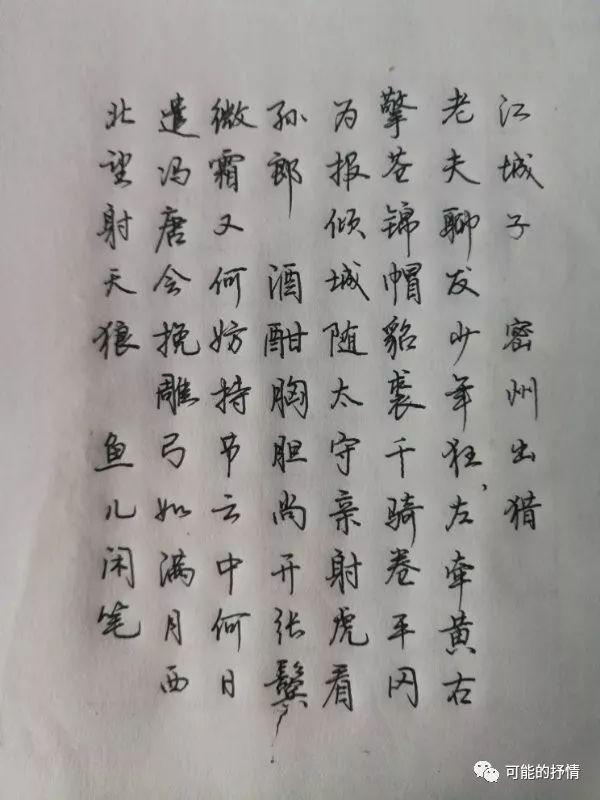 江城子 密州出猎
老夫聊发少年狂，左牵黄右
擎苍锦帽貂裘千骑卷平冈
为报倾城随太守亲射虎看
孙郎 酒酣胸胆尚开张鬓
微霜又何妨持节云中何日
遣冯唐会挽雕弓如满月西
北望射天狼 鱼儿闲笔
可能的抒情